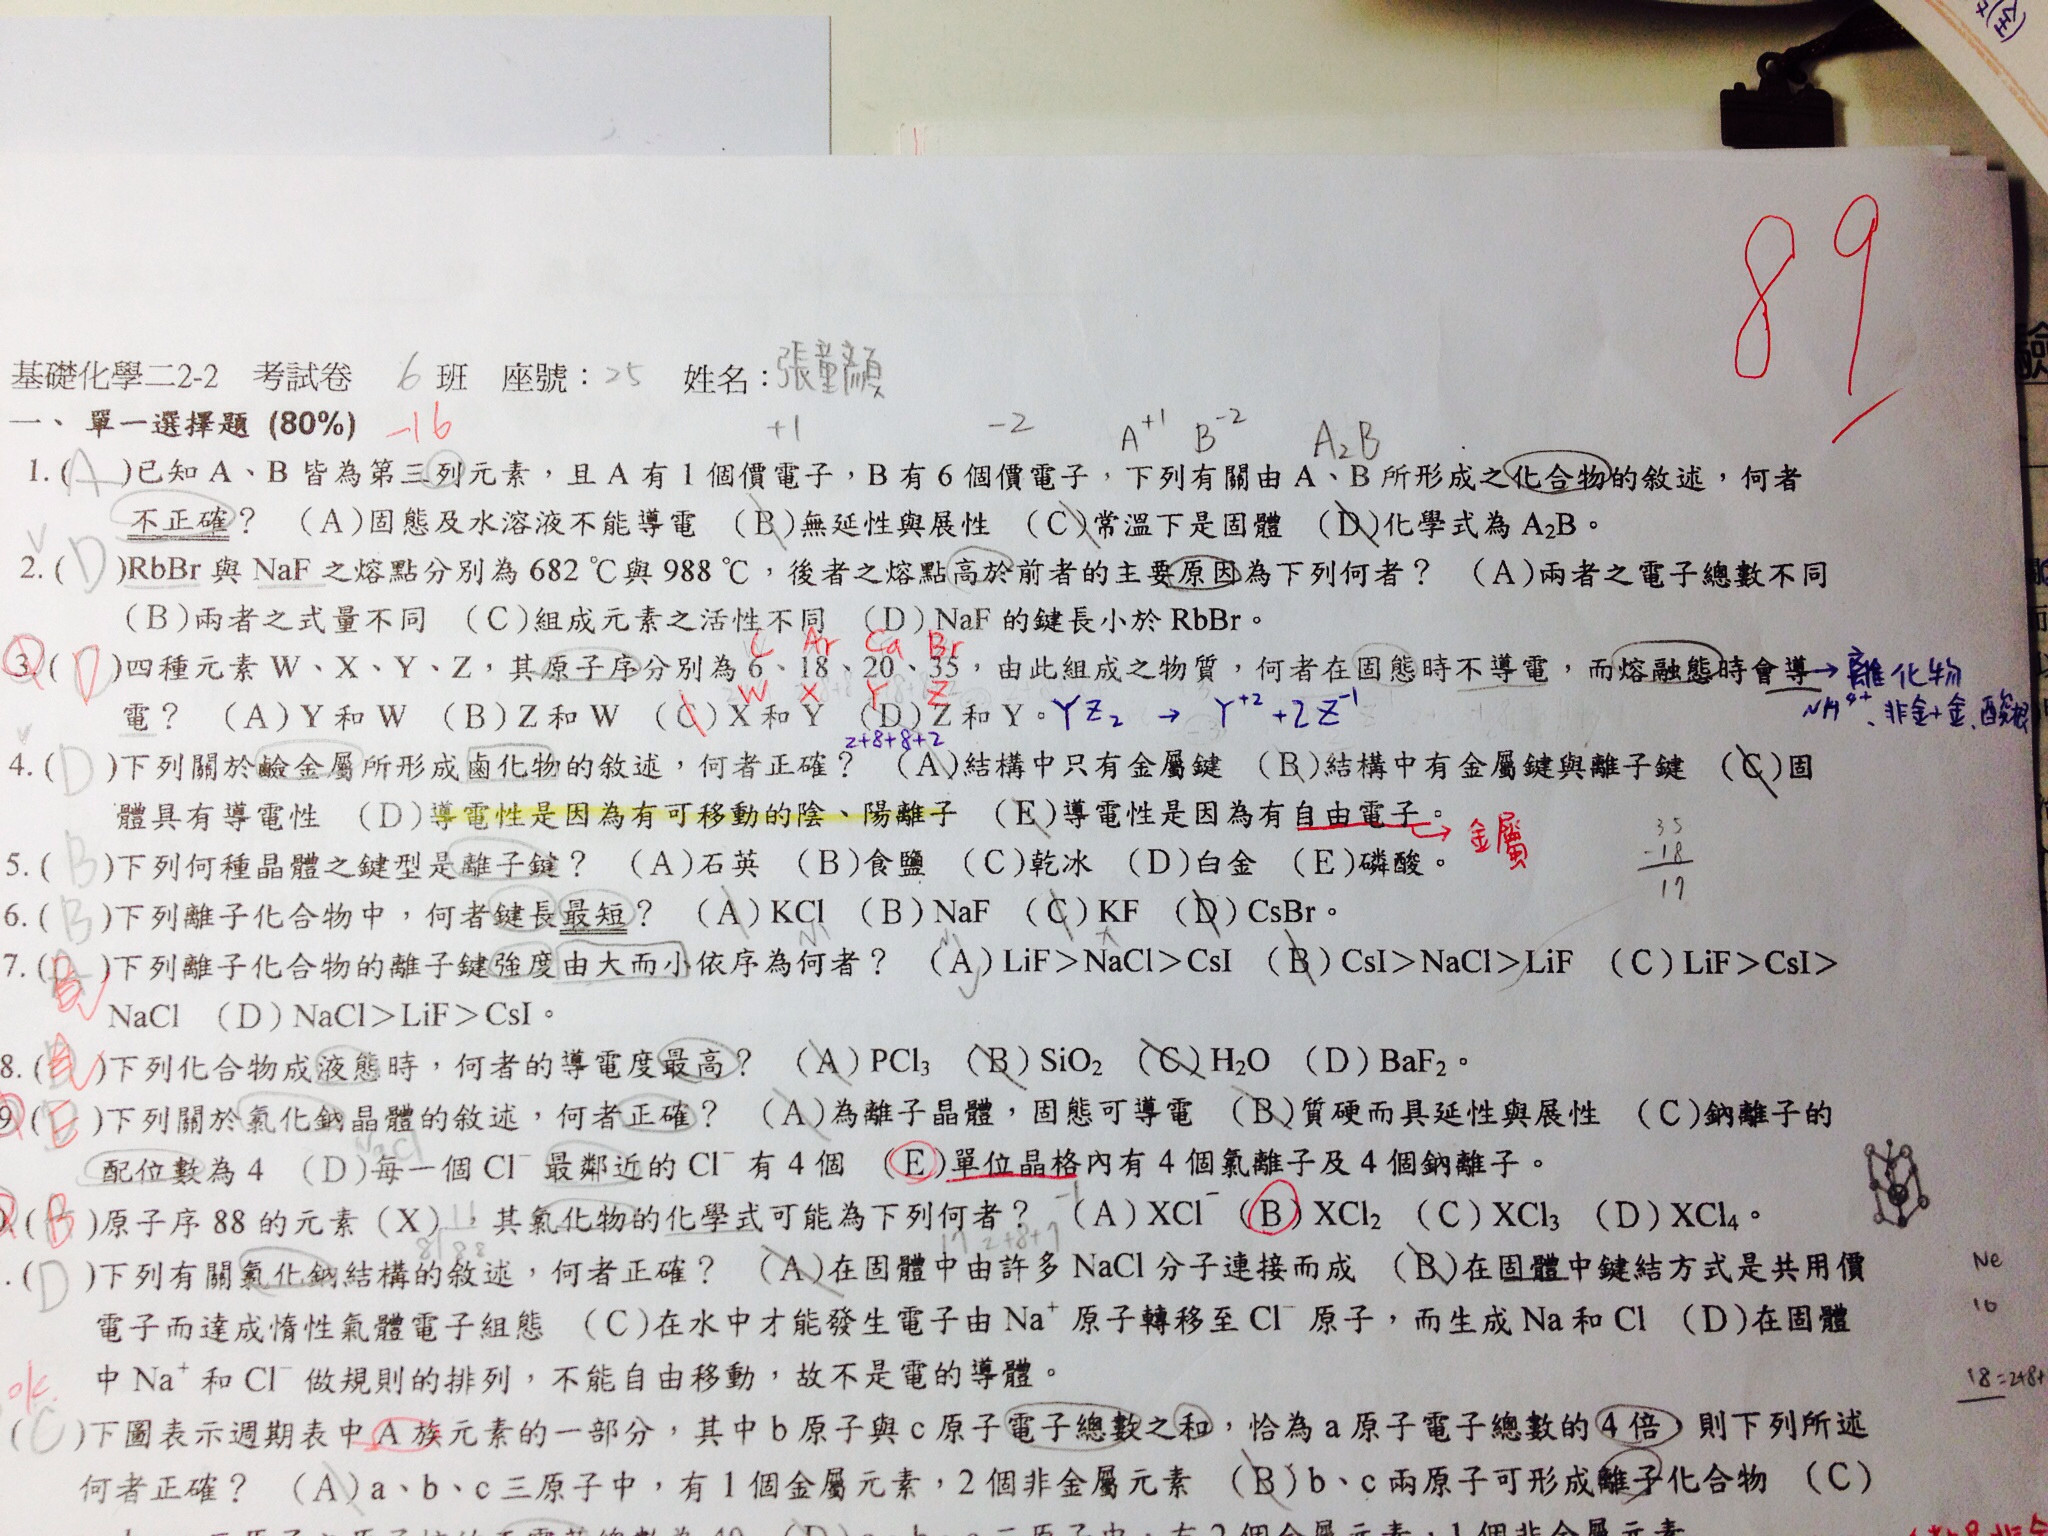 89
基礎化學二2-2 考試卷 6 班 座號：25 姓名：張童顏
一、單一選擇題 (80%) -16
+1 -2 A+1 B-2 A2B
1. (A)已知 A、B 皆為第三列元素，且 A 有 1 個價電子，B 有 6 個價電子，下列有關由 A、B 所形成之化合物的敘述，何者
不正確？ (A)固態及水溶液不能導電 (B)無延性與展性 (C)常溫下是固體 (D)化學式為 A2B。
2. (D)RbBr 與 NaF 之熔點分別為 682 ℃與 988 ℃，後者之熔點高於前者的主要原因為下列何者？ (A)兩者之電子總數不同
(B)兩者之式量不同 (C)組成元素之活性不同 (D)NaF 的鍵長小於 RbBr。
C Ar Ca Br
3. (D)四種元素 W、X、Y、Z，其原子序分別為 6、18、20、35，由此組成之物質，何者在固態時不導電，而熔融態時會導 → 離化物
W X Y Z
電？ (A)Y 和 W (B)Z 和 W (C)X 和 Y (D)Z 和 Y。 YZ2 → Y+2 + 2Z-1 非金+金、酸根
2+8+8+2
4. (D)下列關於鹼金屬所形成鹵化物的敘述，何者正確？ (A)結構中只有金屬鍵 (B)結構中有金屬鍵與離子鍵 (C)固
體具有導電性 (D)導電性是因為有可移動的陰、陽離子 (E)導電性是因為有自由電子。 → 金屬
35
-18
17
5. (B)下列何種晶體之鍵型是離子鍵？ (A)石英 (B)食鹽 (C)乾冰 (D)白金 (E)磷酸。
6. (B)下列離子化合物中，何者鍵長最短？ (A)KCl (B)NaF (C)KF (D)CsBr。
7. ( )下列離子化合物的離子鍵強度由大而小依序為何者？ (A)LiF＞NaCl＞CsI (B)CsI＞NaCl＞LiF (C)LiF＞CsI＞
NaCl (D)NaCl＞LiF＞CsI。
8. ( )下列化合物成液態時，何者的導電度最高？ (A)PCl3 (B)SiO2 (C)H2O (D)BaF2。
9. (E)下列關於氯化鈉晶體的敘述，何者正確？ (A)為離子晶體，固態可導電 (B)質硬而具延性與展性 (C)鈉離子的
NaCl
配位數為 4 (D)每一個 Cl− 最鄰近的 Cl− 有 4 個 (E)單位晶格內有 4 個氯離子及 4 個鈉離子。
-1
(B)原子序 88 的元素（X），其氯化物的化學式可能為下列何者？ (A)XCl− (B)XCl2 (C)XCl3 (D)XCl4。
17 2+8+7
. (D)下列有關氯化鈉結構的敘述，何者正確？ (A)在固體中由許多 NaCl 分子連接而成 (B)在固體中鍵結方式是共用價
Ne
10
電子而達成惰性氣體電子組態 (C)在水中才能發生電子由 Na+ 原子轉移至 Cl− 原子，而生成 Na 和 Cl (D)在固體
中 Na+ 和 Cl− 做規則的排列，不能自由移動，故不是電的導體。
18=2+8+
ok.
(C)下圖表示週期表中 A 族元素的一部分，其中 b 原子與 c 原子電子總數之和，恰為 a 原子電子總數的 4 倍，則下列所述
何者正確？ (A)a、b、c 三原子中，有 1 個金屬元素，2 個非金屬元素 (B)b、c 兩原子可形成離子化合物 (C)